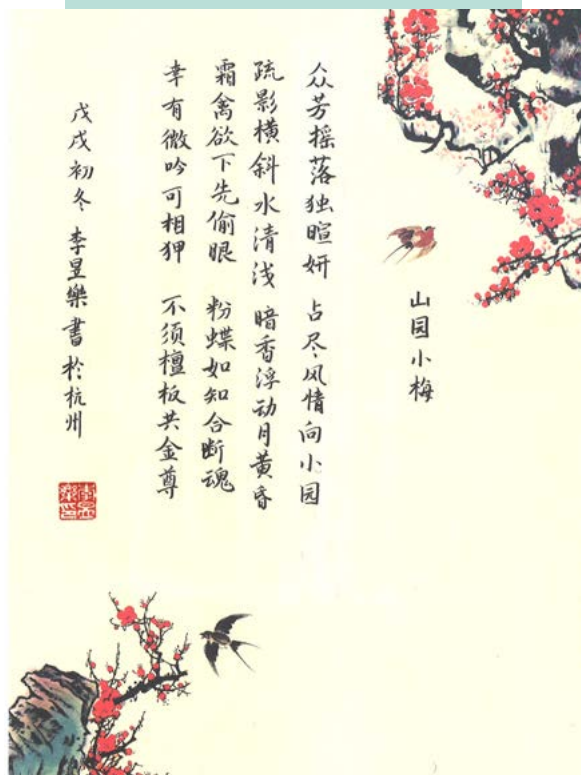 山园小梅
众芳摇落独暄妍 占尽风情向小园
疏影横斜水清浅 暗香浮动月黄昏
霜禽欲下先偷眼 粉蝶如知合断魂
幸有微吟可相狎 不须檀板共金尊
戊戌初冬 李昱樂書於杭州